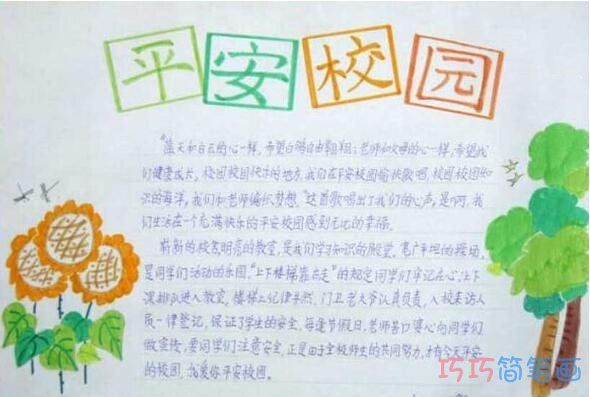 平安校园
"蓝天和白云的心一样,希望白鸽自由翱翔;老师和父母的心一样,希望我
们健康成长,校园校园快乐的地方,我们在平安校园愉快歌唱,校园校园知
识的海洋,我们和老师编织梦想"这首歌唱出了我们的心声,是啊,我
们生活在一个充满快乐的平安校园感到无比的幸福。
崭新的校舍,明亮的教室,是我们学习知识的殿堂,宽广平坦的操场,
是同学们活动的乐园,"上下楼梯靠右走"的规定同学们牢记在心,上下
课排队进入教室,楼梯上纪律井然,门卫老大爷认真负责,入校来访人
员一律登记,保证了学生的安全,每逢节假日,老师苦口婆心向同学们
做宣传,要同学们注意安全,正是由于全校师生的共同努力,才有今天平安
的校园,我爱你平安校园。
巧巧简笔画